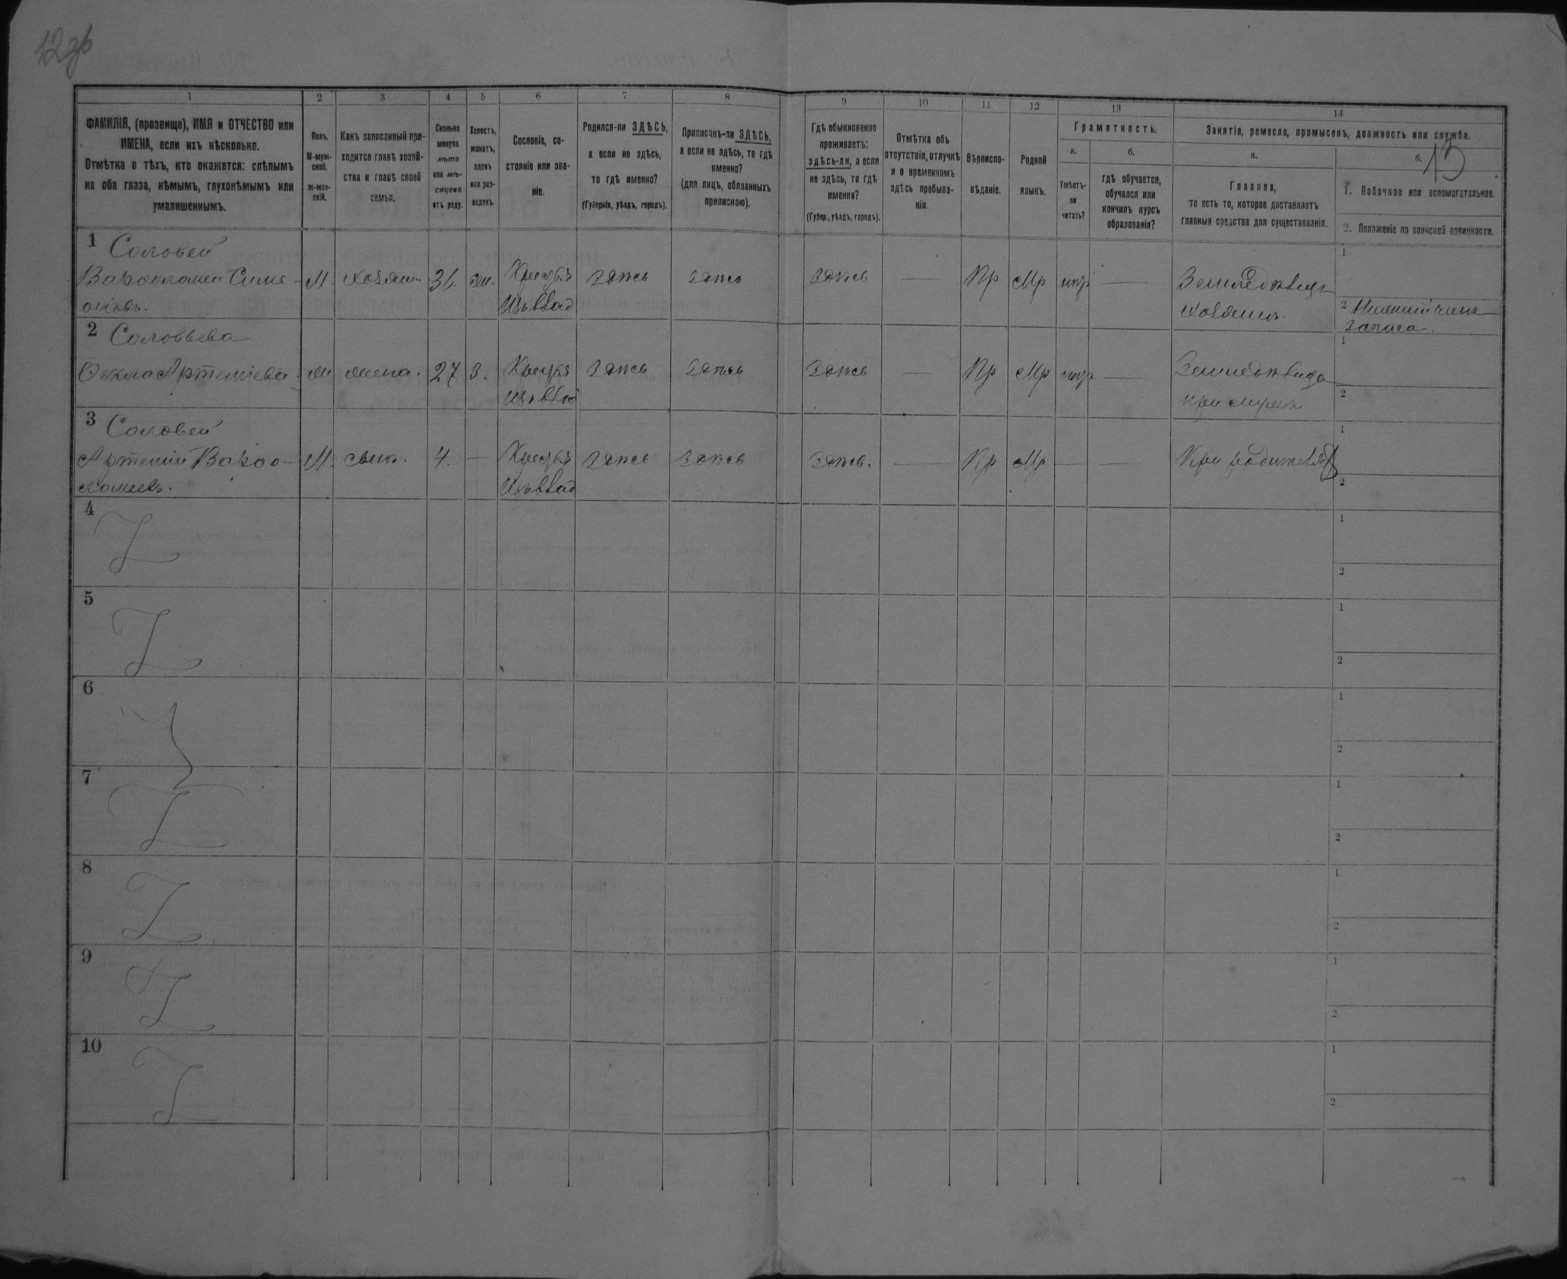 12об
13
1
2
3
4
5
6
7
8
9
10
11
12
13
14
ФАМИЛІЯ, (прозвище), ИМЯ и ОТЧЕСТВО или
ИМЕНА, если ихъ нѣсколько.
Отмѣтка о тѣхъ, кто окажется: слѣпымъ
на оба глаза, нѣмымъ, глухонѣмымъ или
умалишеннымъ.
Полъ.
М-муж-
ской.
ж-жен-
скій.
Какъ записанный при-
ходится главѣ хозяй-
ства и главѣ своей
семьи.
Сколько
минуло
лѣтъ
или мѣ-
сяцевъ
отъ роду.
Холостъ,
женатъ,
вдовъ
или раз-
веденъ.
Сословіе, со-
стояніе или зва-
ніе.
Родился-ли ЗДѢСЬ,
а если не здѣсь,
то гдѣ именно?
(Губернія, уѣздъ, городъ).
Приписанъ-ли ЗДѢСЬ,
а если не здѣсь, то гдѣ
именно?
(для лицъ, обязанныхъ
припискою).
Гдѣ обыкновенно
проживаетъ:
здѣсь-ли, а если
не здѣсь, то гдѣ
именно?
(Губер., уѣздъ, городъ).
Отмѣтка объ
отсутствіи, отлучкѣ
и о временномъ
здѣсь пребыва-
ніи.
Вѣроиспо-
вѣданіе.
Родной
языкъ.
Грамотность.
а.
Умѣетъ-
ли
читать?
б.
гдѣ обучается,
обучался или
кончилъ курсъ
образованія?
Занятіе, ремесло, промыселъ, должность или служба.
а.
Главное,
то есть то, которое доставляетъ
главныя средства для существованія.
б.
1. Побочное или вспомогательное.
2. Положеніе по воинской повинности.
1 Соловей
Варфоломей Симе-
оновъ.
М
хозяин
31.
жн.
здѣсь
здѣсь
здѣсь
—
Пр
Мр
—
Земледѣлецъ
хозяинъ
1
2 Нижній чинъ
запаса
2 Соловьева
Фекла Артемьева
ж
жена.
27
З.
здѣсь
здѣсь
здѣсь
—
Пр
Мр
—
при мужѣ
1
2
3 Соловей
Артемій Варфо-
ломеевъ.
М
сынъ.
4.
—
здѣсь
здѣсь
здѣсь.
—
Пр
Мр
—
—
При родителях
1
2
4
1
2
5
1
2
6
1
2
7
1
2
8
1
2
9
1
2
10
1
2